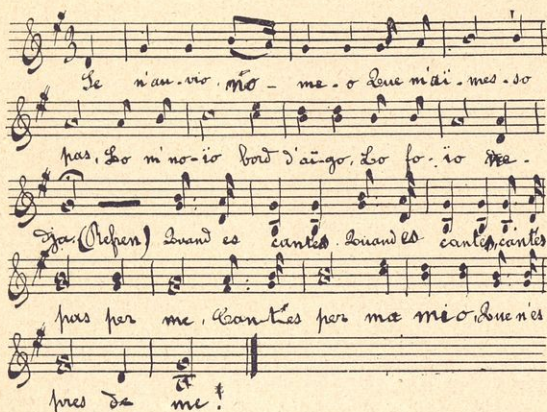 Se n'au-vio no-me-o Que m'ai-mes-so
pas, Lo me-no-ïo bord d'aï-go, Lo fo-ïo
dja. (Refren) Quand es cantes. Quand es cantes, cantes
pas per me, Can-tes per ma mio, Que n'es
pres de me!